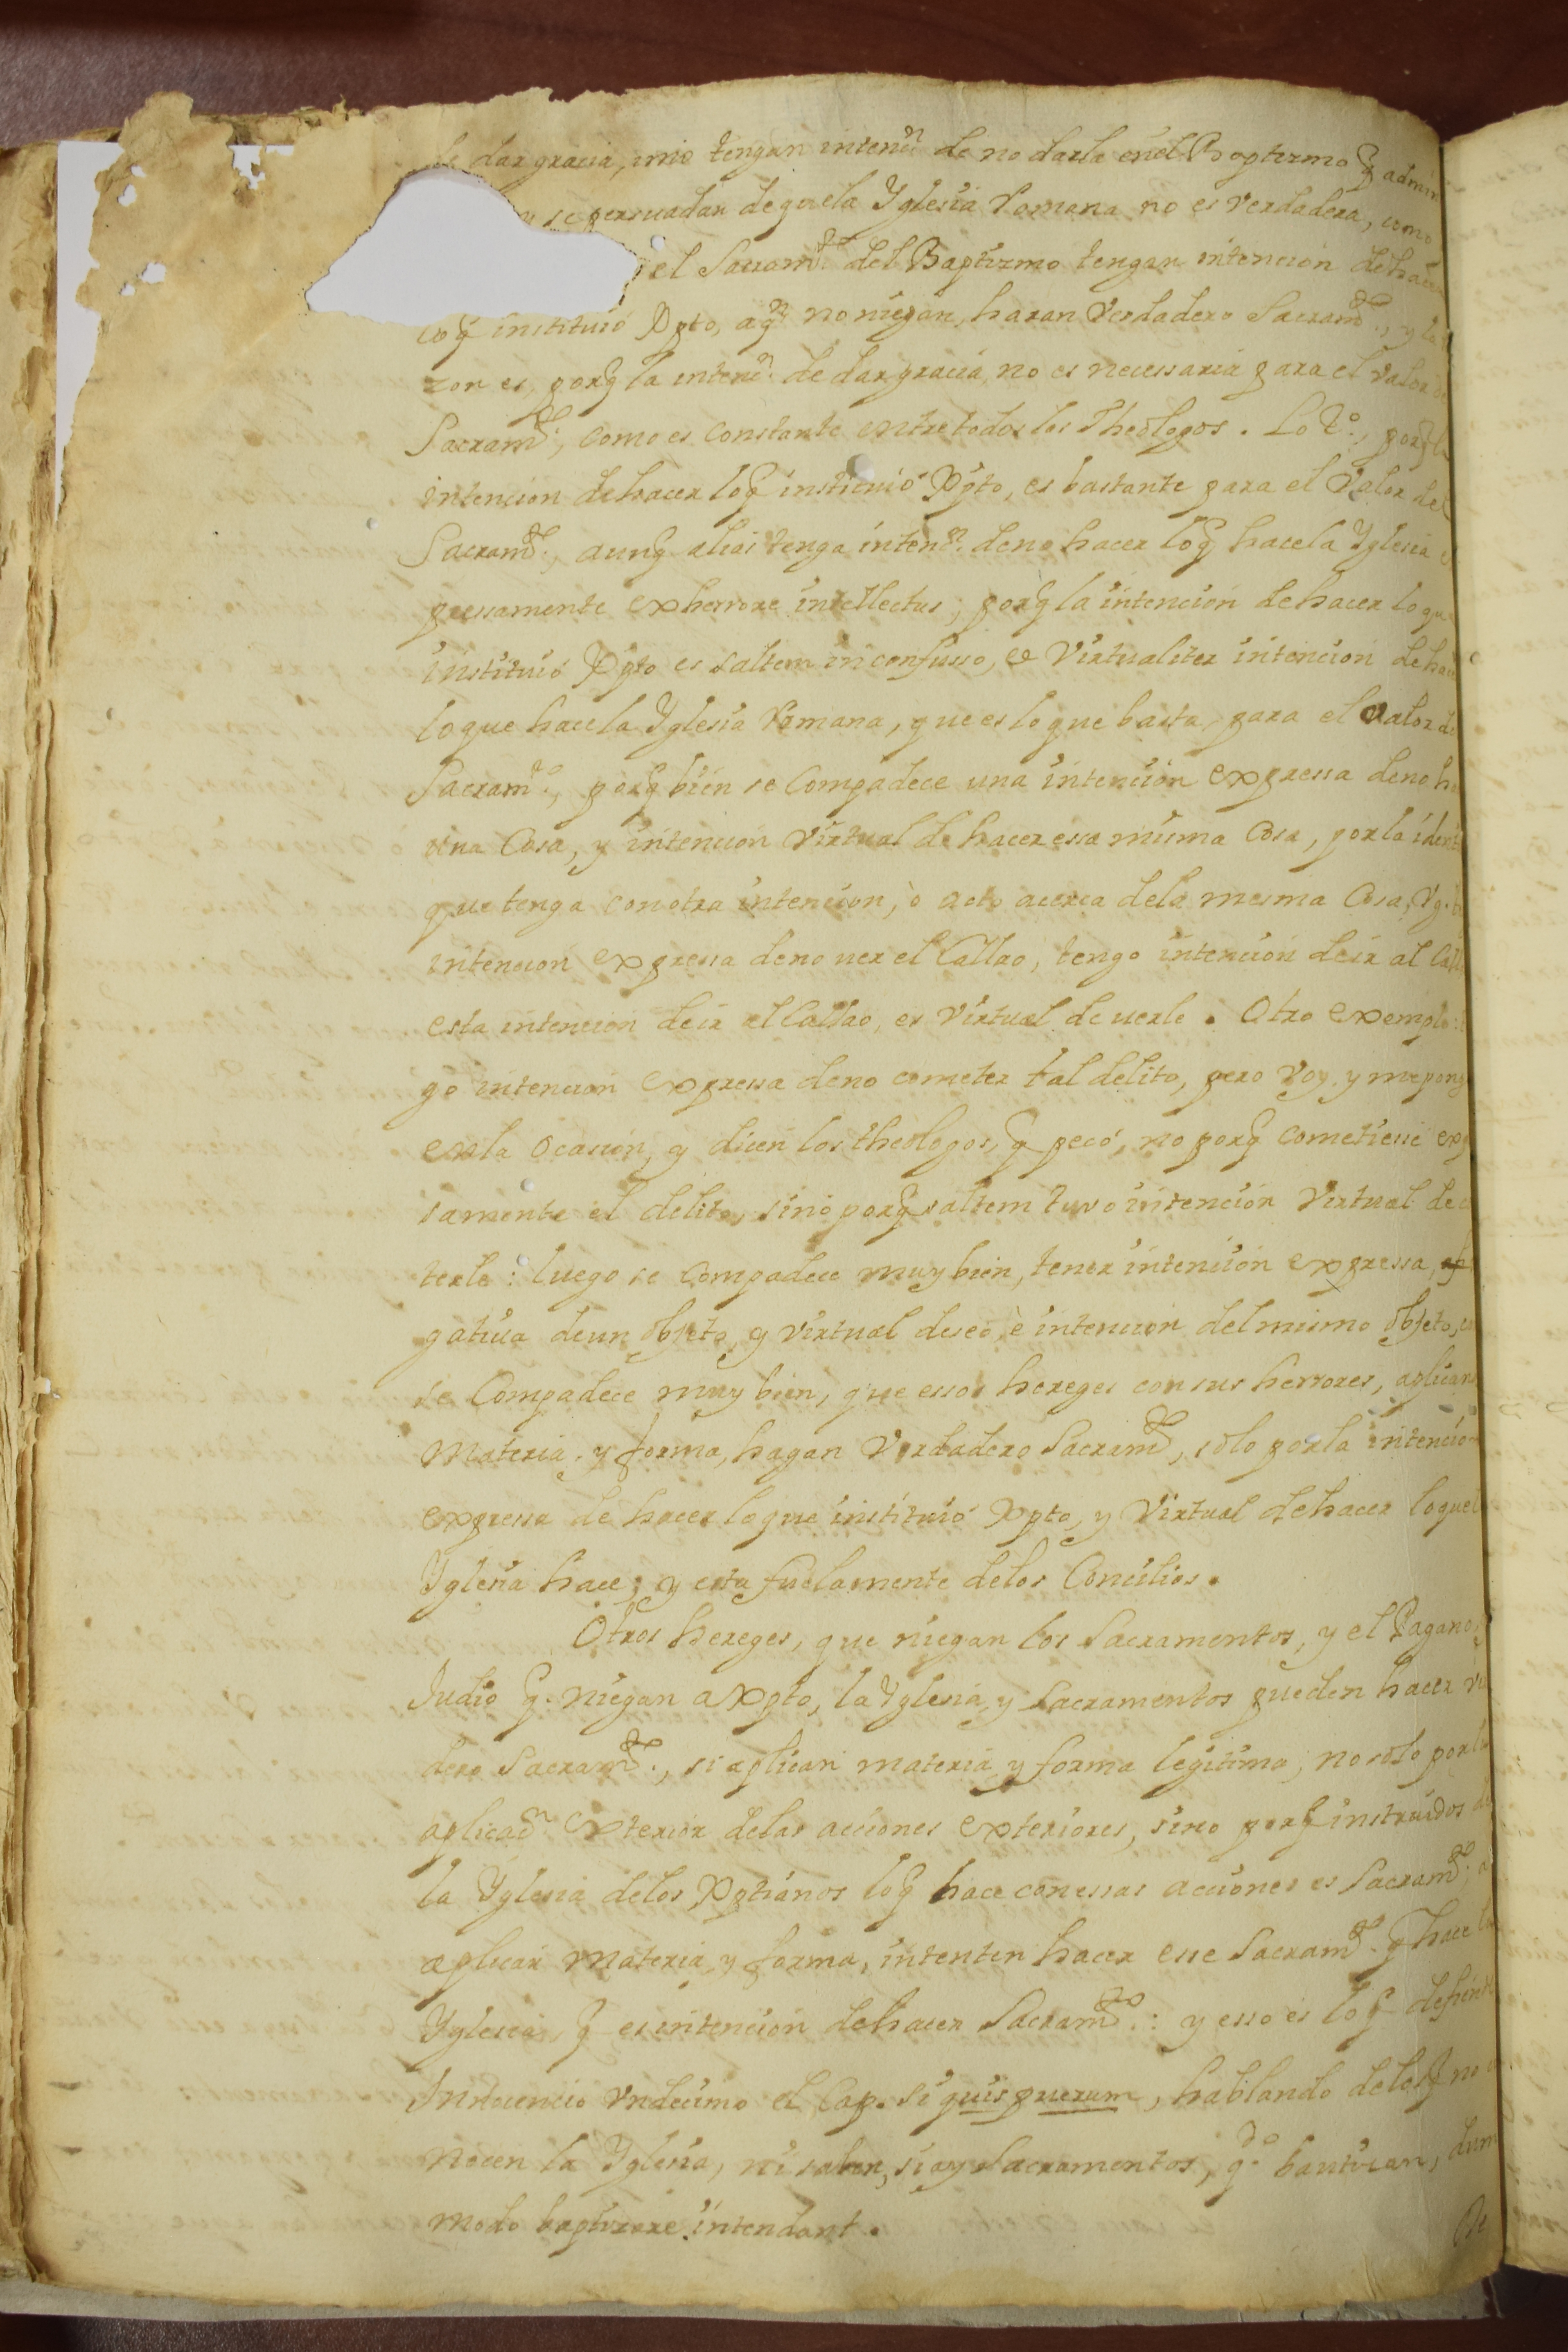 de dar gracia, imo tengan intenn. de no darla en el Baptizmo q̃ admin
y se persuadan de que la Yglesia Romana no es verdadera, como
el Sacramto. del Baptizmo tengan intencion de hacer
lo q̃ instituió Xpto, aqn. no niegan, haran verdadero Sacramto., y la
zon es, porq̃ la intenn. de dar gracia, no es necessaria para el valor de
Sacramto., como es constante entre todos los Theologos. Lo 2o., porq̃ la
intencion de hacer lo q̃ instituió Xpto, es bastante para el valor del
Sacramto., aunq̃ alias tenga intenn. de no hacer lo q̃ hace la Yglesia e
pressamente ex herrore intellectus; porq̃ la intencion de hacer lo que
instituió Xpto es saltem in confusso, et virtualiter intencion de hace
lo que hace la Yglesia Romana, que es lo que basta para el valor de
Sacramto., porq̃ bien se compadece una intencion expressa de no ha
una cosa, y intencion virtual de hacer essa misma cosa, por la ident
que tenga con otra intencion, ò acto acerca de la mesma cosa, Vg. te
intencion expressa de no ver el Callao, tengo intencion de ir al Calla
esta intencion de ir al Callao, es virtual de verle. Otro exemplo: t
go intencion expressa de no cometer tal delito, pero voy y me pong
en la ocasion, y dicen los theologos, q̃ pecó, no porq̃ cometiesse exp
samente el delito, sino porq̃ saltem tuvo intencion virtual de c
terle: luego se compadece muy bien, tener intencion expressa,
gativa de un objeto, y virtual deseo, è intencion del mismo objeto, co
se compadece muy bien, que essos hereges con sus herrores, aplican
materia, y forma, hagan verdadero Sacramto, solo por la intención
expressa de hacer lo que instituió Xpto, y virtual de hacer lo que l
Yglesia hace; y esta fue la mente de los Concilios.
Otros hereges, que niegan los Sacramentos, y el Pagano, y
Judio q̃. niegan a Xpto, la Yglesia, y Sacramentos pueden hacer ver
dero Sacramto., si aplican materia y forma legitima; no solo por la
aplicacn. exterior de las acciones exteriores, sino porq̃ instruidos de
la Yglesia de los Xptianos lo q̃ hace con essas acciones es Sacramto. a
aplicar materia, y forma, intenten hacer esse Sacramto. q̃ hace la
Yglesia, q̃ es intencion de hacer Sacramto.: y esso es lo q̃ define
Innocencio undecimo el Cap. Si quis puerum, hablando de los q̃ no co
nocen la Yglesia, ni saben, si ay Sacramentos, qdo. bautizan, dum
modo baptizare intendant.
De